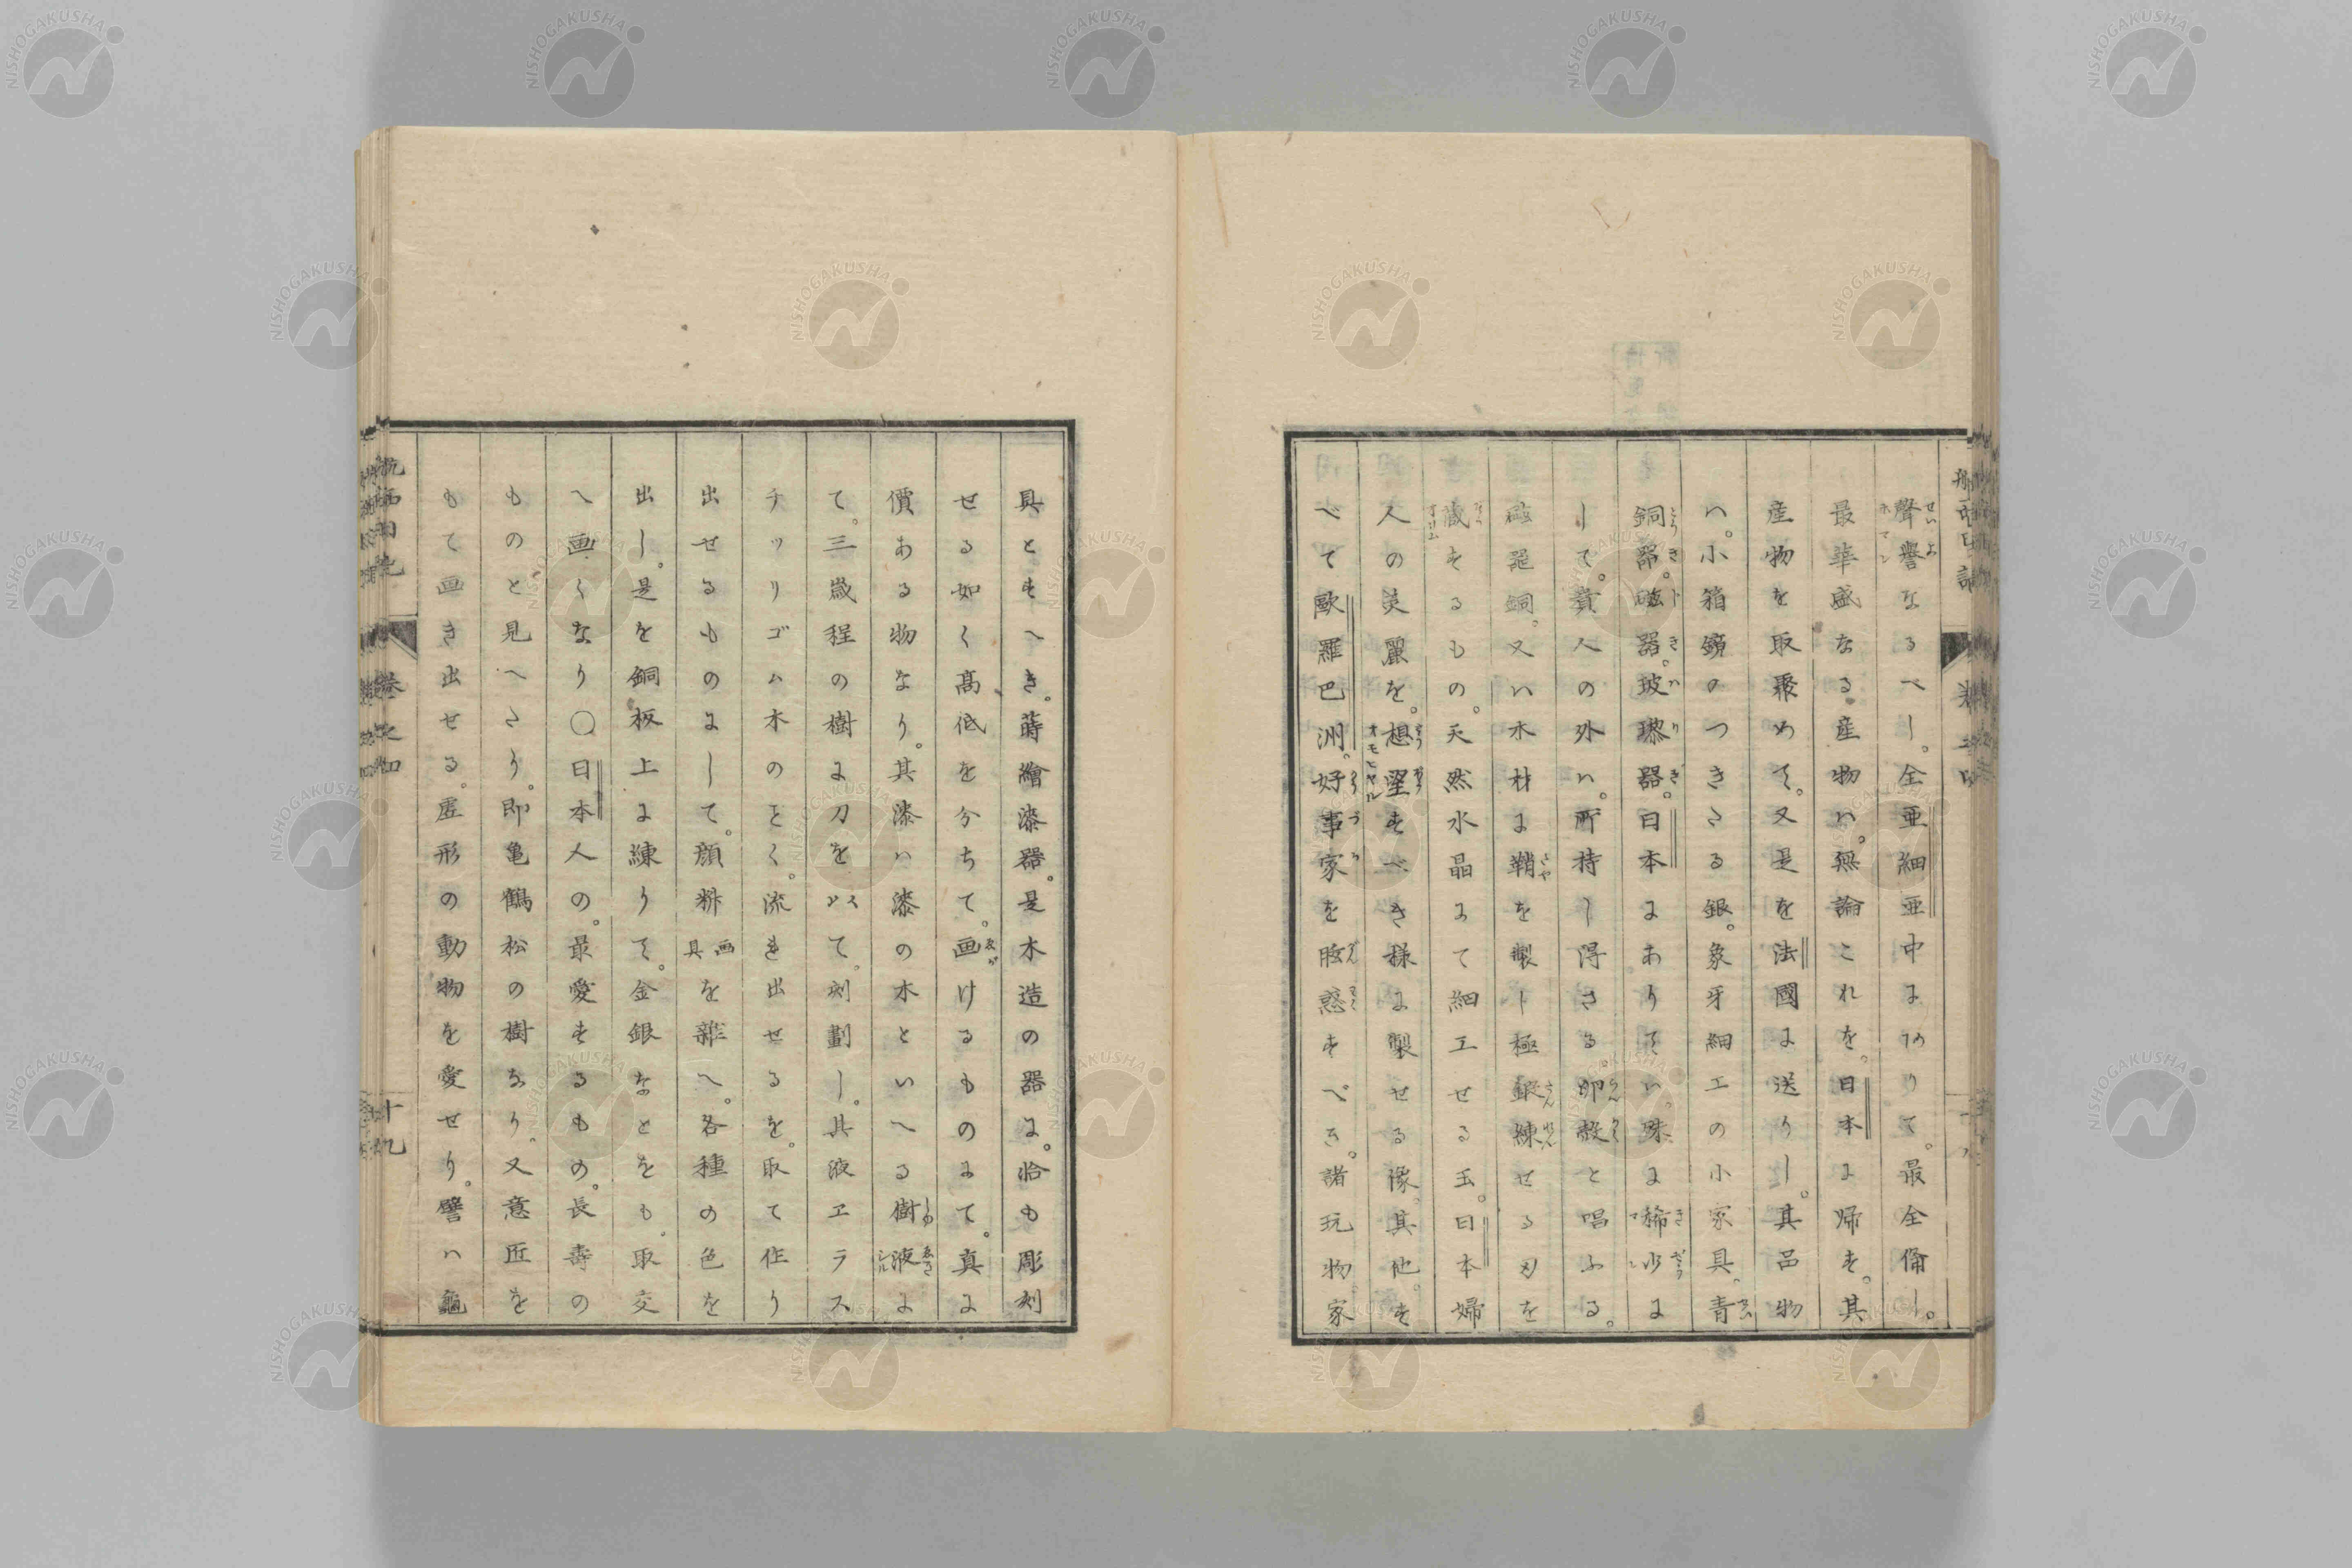 聲譽なるべし。全亜細亜中にありて。最全備し。
最華盛なる産物ハ。無論これを。日本に帰す。其
産物を取聚めて。又是を法國に送りし。其品物
ハ。小箱鏡のつきたる銀。象牙細工の小家具。青
銅器。磁器。玻瓈器。日本にありてハ。殊に稀少に
して。貴人の外ハ。所持し得さる卵殻と唱ふる。
磁器銅。又ハ木材に鞘を製し極鍛練せる刃を
蔵するもの。天然水晶にて細工せる玉。日本婦
人の美麗を。想望すべき様に製せる像。其他。す
べて歐羅巴洲。好事家を眩惑すべき。諸玩物。家
具ともすへき。蒔繪漆器。是木造の器に。恰も彫刻
せる如く高低を分ちて。画けるものにて。真に
價ある物なり。其漆ハ漆の木といへる樹液に
て。三歳程の樹に刀を以て。刻劃し。其液ヱラス
チックゴム木のごとく。流き出せるを。取て作り
出せるものにして。顔料画具を雜へ。各種の色を
出し。是を銅板上に練りて。金銀などをも。取交
へ画くなり〇日本人の。最愛するもの。長壽の
ものと見へたり。即亀鶴松の樹なり。又意匠を
もて画き出せる。虚形の動物を愛せり。譬ハ龜
航西日記
卷之四
十九
NISHOGAKUSHA